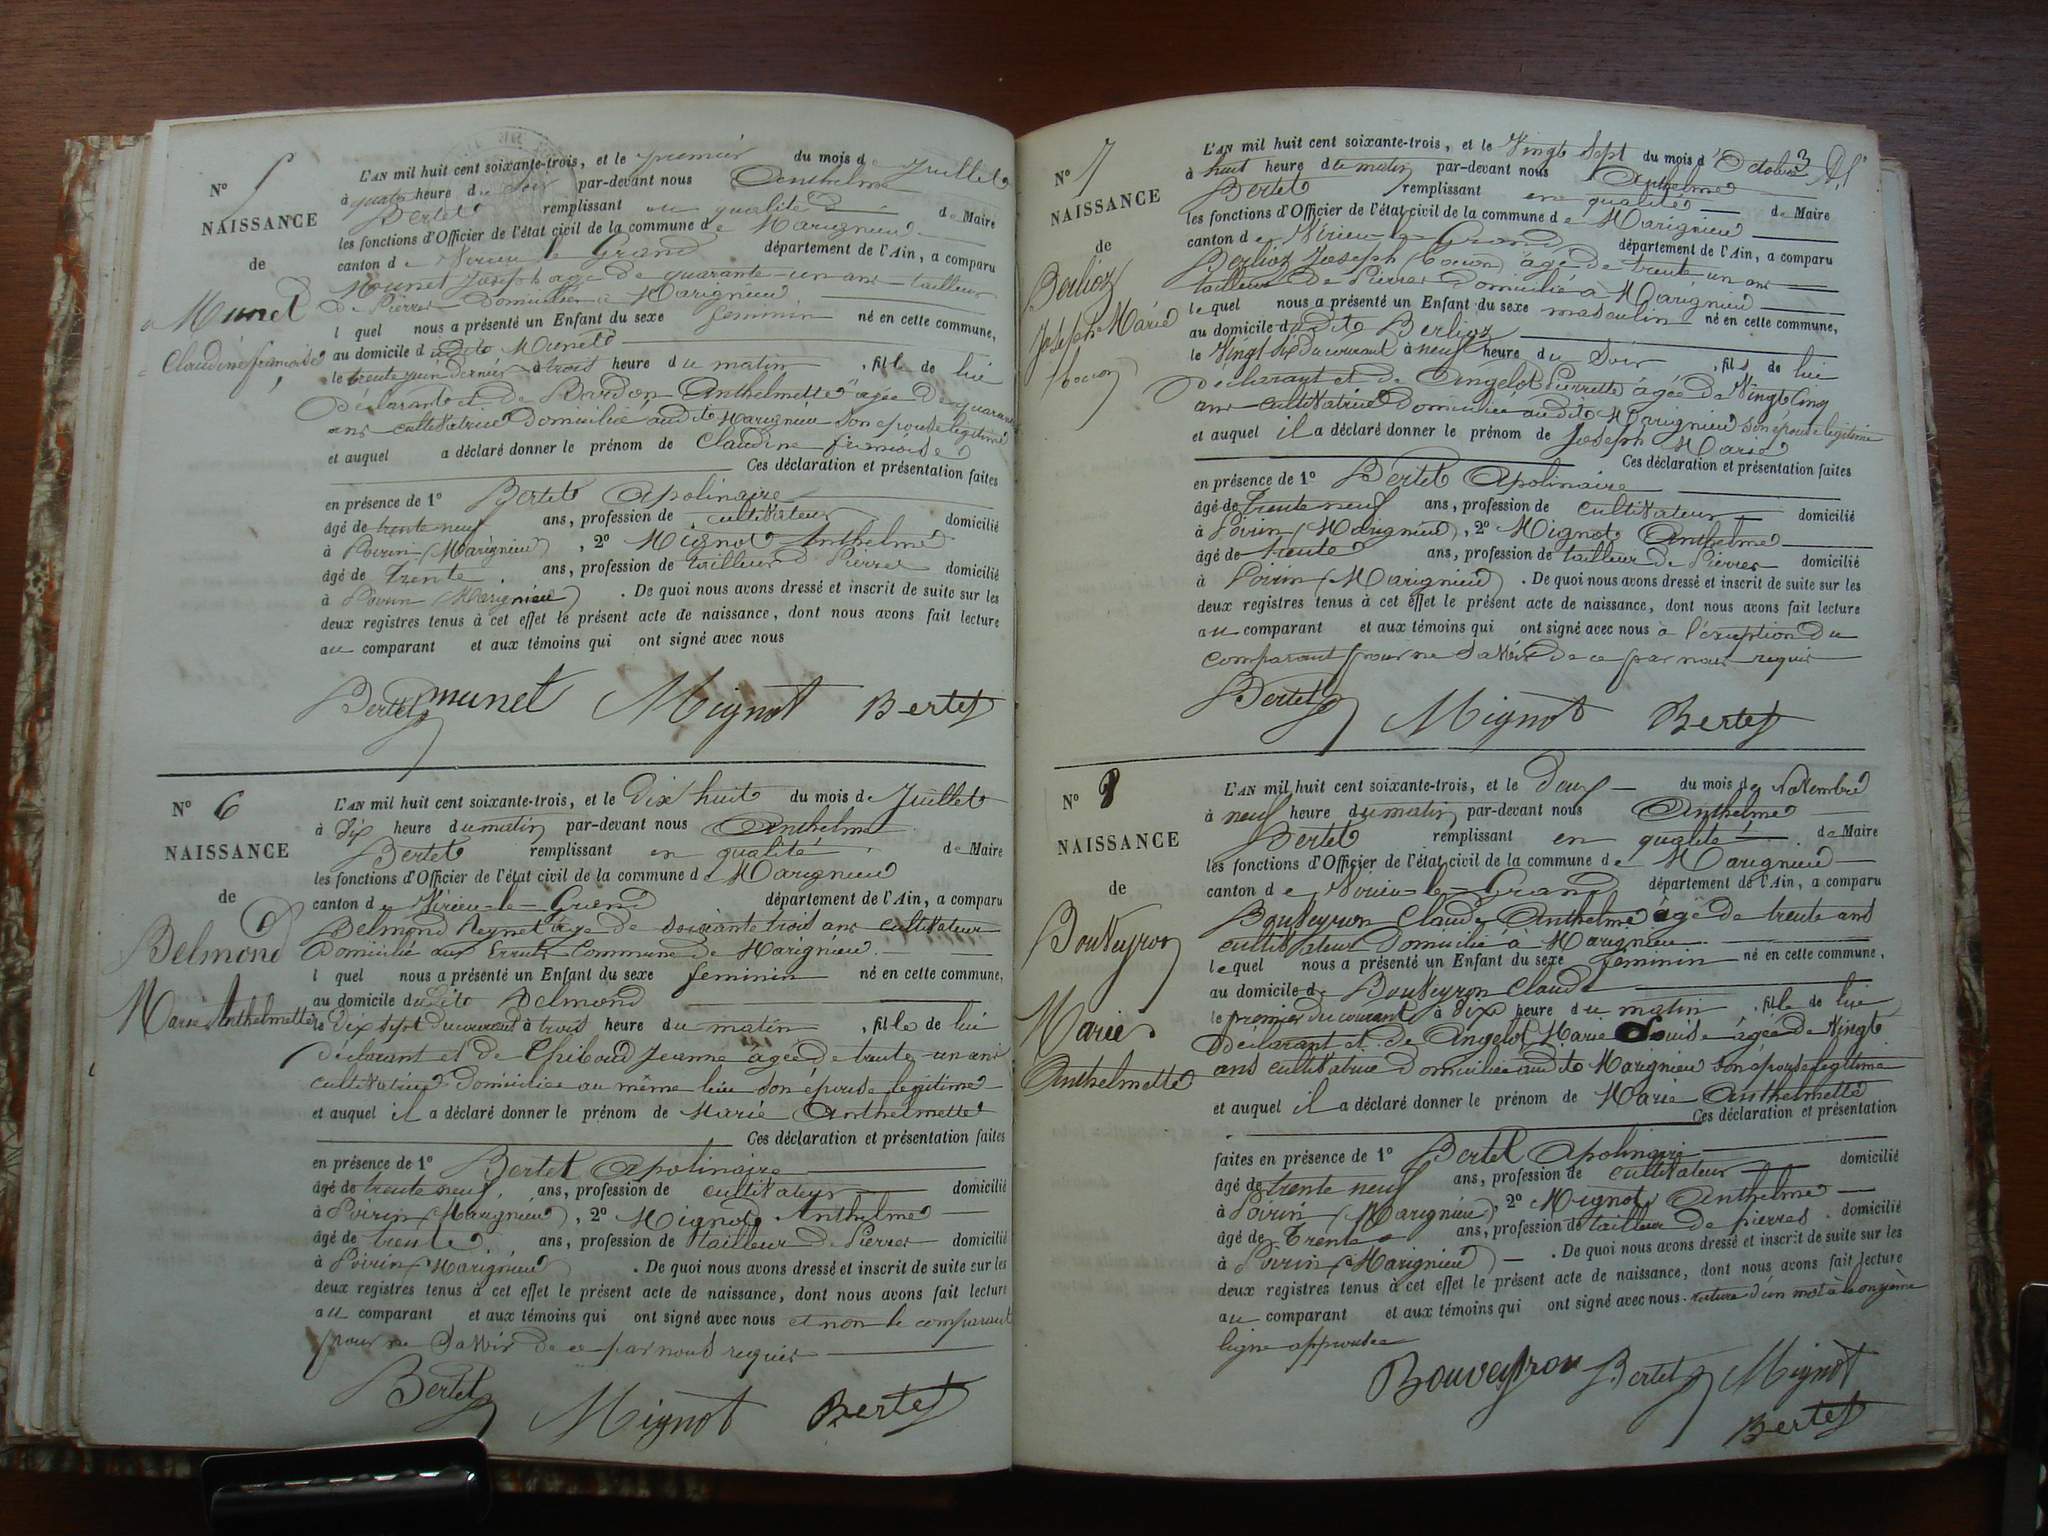 N° 5
NAISSANCE
de
Munet
Claudine françoise
L'AN mil huit cent soixante-trois, et le premier du mois de Juillet
à quatre heure du Soir par-devant nous Anthelme
Bertet remplissant en qualité de Maire
les fonctions d'Officier de l'état civil de la commune de Marignieu
canton de Virieu le Grand département de l'Ain, a comparu
Mounet Joseph agé de quarante-un ans tailleur
de Pierres Domicilié à Marignieu
lequel nous a présenté un Enfant du sexe feminin né en cette commune,
au domicile dudit Munet
le trente juin dernier à trois heure du matin, fille de lui
déclarant et de Bardon Anthelmette agée de quarante
ans cultivatrice domiciliée audit Marignieu son épouse légitime
et auquel a déclaré donner le prénom de Claudine francoise
Ces déclaration et présentation faites
en présence de 1° Bertet Apolinaire
âgé de trente neuf ans, profession de cultivateur domicilié
à Poirin (Marignieu), 2° Mignot Anthelme
âgé de trente ans, profession de tailleur de Pierres domicilié
à Poirin (Marignieu). De quoi nous avons dressé et inscrit de suite sur les
deux registres tenus à cet effet le présent acte de naissance, dont nous avons fait lecture
au comparant et aux témoins qui ont signé avec nous
Bertet munet Mignot Bertet
N° 6
NAISSANCE
de
Belmond
Marie Anthelmette
L'AN mil huit cent soixante-trois, et le dix huit du mois de Juillet
à dix heure du matin par-devant nous Anthelme
Bertet remplissant en qualité de Maire
les fonctions d'Officier de l'état civil de la commune de Marignieu
canton de Virieu-le-Grand département de l'Ain, a comparu
Belmond Reynet âgé de soixante trois ans cultivateur
Domicilié aux Commune de Marignieu
lquel nous a présenté un Enfant du sexe feminin né en cette commune,
au domicile dudito Belmond
le dix sept du courant à trois heure du matin, fille de lui
déclarant et de Thiboud Jeanne agée de trente-un ans
cultivatrice domiciliée au même lieu son épouse légitime
et auquel il a déclaré donner le prénom de Marie Anthelmette
Ces déclaration et présentation faites
en présence de 1° Bertet Apolinaire
âgé de trente neuf, ans, profession de cultivateur domicilié
à Poirin (Marignieu), 2° Mignot Anthelme
âgé de trente ans, profession de tailleur de Pierres domicilié
à Poirin (Marignieu). De quoi nous avons dressé et inscrit de suite sur les
deux registres tenus à cet effet le présent acte de naissance, dont nous avons fait lecture
au comparant et aux témoins qui ont signé avec nous et non le comparant
pour ne savoir de ce par nous requis
Bertet Mignot Bertet
3
N° 7
NAISSANCE
de
Berlioz
Joseph Marie
L'AN mil huit cent soixante-trois, et le Vingt Sept du mois d'Octobre
à huit heure du matin par-devant nous Anthelme
Bertet remplissant en qualité de Maire
les fonctions d'Officier de l'état civil de la commune de Marignieu
canton de Virieu-le-Grand département de l'Ain, a comparu
Berlioz Joseph âgé de trente un ans
tailleur de Pierres domicilié à Marignieu
lequel nous a présenté un Enfant du sexe masculin né en cette commune,
au domicile dudito Berlioz
le Vingt Six du courant à neuf heure du Soir, fils de lui
déclarant et de Angelot Pierrette agée de Vingt Cinq
ans cultivatrice domiciliée audito Marignieu son épouse légitime
et auquel il a déclaré donner le prénom de Joseph Marie
Ces déclaration et présentation faites
en présence de 1° Bertet Apolinaire
âgé de trente neuf ans, profession de cultivateur domicilié
à Poirin (Marignieu), 2° Mignot Anthelme
âgé de trente ans, profession de tailleur de Pierres domicilié
à Poirin (Marignieu). De quoi nous avons dressé et inscrit de suite sur les
deux registres tenus à cet effet le présent acte de naissance, dont nous avons fait lecture
au comparant et aux témoins qui ont signé avec nous à l'exeption du
comparant pour ne savoir de ce par nous requis
Bertet Mignot Bertet
N° 8
NAISSANCE
de
Bouveyron
Marie
Anthelmette
L'AN mil huit cent soixante-trois, et le Deux du mois de Novembre
à neuf heure du matin par-devant nous Anthelme
Bertet remplissant en qualité de Maire
les fonctions d'Officier de l'état civil de la commune de Marignieu
canton de Virieu-le-Grand département de l'Ain, a comparu
Bouveyron Claude Anthelme âgé de trente ans
cultivateur domicilié à Marignieu
lequel nous a présenté un Enfant du sexe feminin né en cette commune,
au domicile de Bouveyron Claude
le premier du courant à dix heure du matin, fille de lui
déclarant et de Angelot Marie Louise agée de Vingt
ans cultivatrice domiciliée audito Marignieu son épouse légitime
et auquel il a déclaré donner le prénom de Marie Anthelmette
Ces déclaration et présentation
faites en présence de 1° Bertet Apolinaire
âgé de trente neuf ans, profession de cultivateur domicilié
à Poirin (Marignieu), 2° Mignot Anthelme
âgé de Trente ans, profession de tailleur de pierres domicilié
à Poirin (Marignieu). De quoi nous avons dressé et inscrit de suite sur les
deux registres tenus à cet effet le présent acte de naissance, dont nous avons fait lecture
au comparant et aux témoins qui ont signé avec nous. rature d'un mot à la onzième
ligne approuvée
Bouveyron Bertet Mignot
Bertet